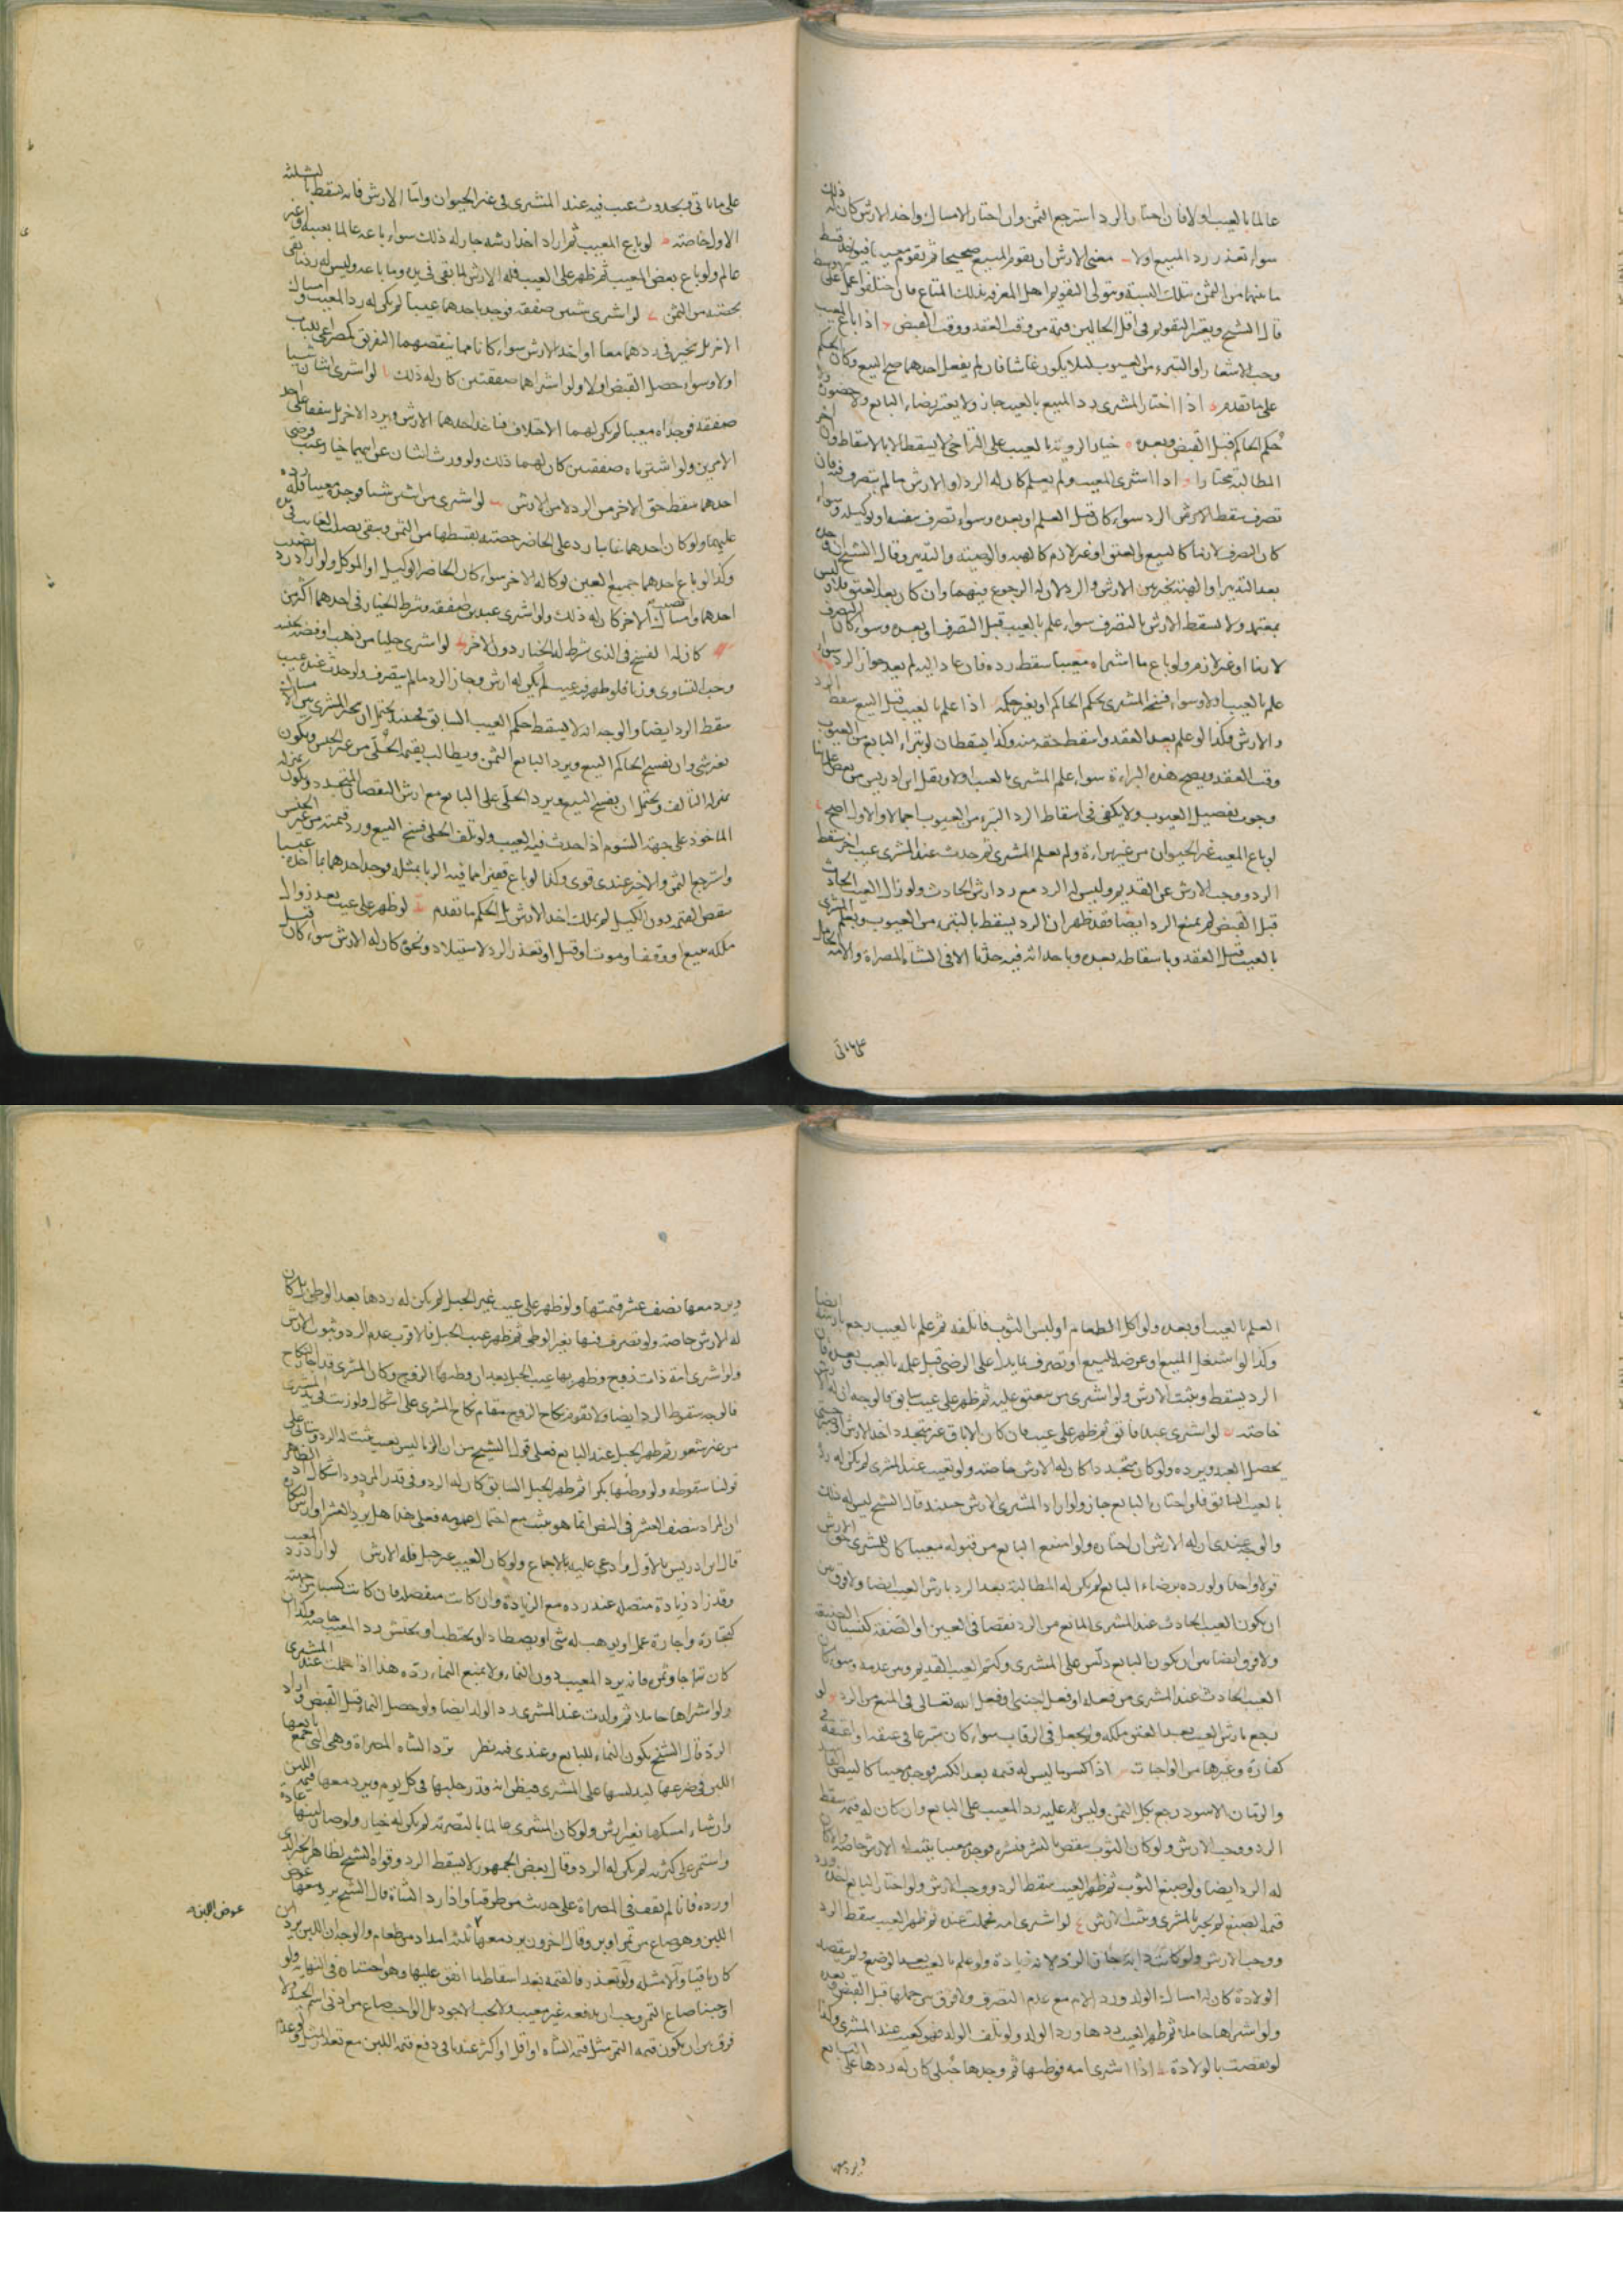 عالما بالعيب اولا فان اختار الرد استرجع الثمن وان اختار الامساك واخذ الارش كان له ذلك
سواء تعذر رد المبيع اولا معنى الارش ان يقوم المبيع صحيحا ثم يقوم معيبا فيوخذ قسط
ما بينهما من الثمن بتلك النسبة ويتولى التقويم اهل المعرفة بذلك المتاع فان اختلفوا عمل على
قال الشيخ ويعتبر التقويم في اقل الحالين قيمة من وقت العقد ووقت القبض اذا باع المعيب
وجب الاشعار او التبري من العيوب لئلا يكون غاشا فان لم يفعل احدهما صح البيع وكان الحكم
على ما تقدم اذا اختار المشتري رد المبيع بالعيب جاز ولا يعتبر رضاء البايع ولا حضوره ولا
حكم الحاكم قبل القبض وبعده خيار الرد بالعيب على التراخي لا يسقط الا بالاسقاط
المطالبة مختارا اذا اشترى المعيب ولم يعلم كان له الرد او الارش ما لم يتصرف فيه فان
تصرف سقط الرد سواء كان قبل العلم او بعده وسواء تصرف بنفسه او بوكيله وسواء
كان التصرف لازما كالبيع والعتق او غير لازم كالهبة والوصية والتدبير وقال الشيخ ان وجده
بعد التدبير او الهبة تخير بين الارش والرد لان له الرجوع فيهما وان كان بعد العتق فلا وليس
بمعتمد ولا يسقط الارش بالتصرف سواء علم بالعيب قبل التصرف او بعده وسواء كان التصرف
لازما او غير لازم ولو باع ما اشتراه معيبا سقط رده فان عاد اليه لم يعد جواز الرد سواء
علم بالعيب اولا وسواء فسخ المشتري بحكم الحاكم او بغير حكمه اذا علم بالعيب قبل البيع سقط الرد
والارش وكذا لو علم بعد العقد واسقط حقه منه وكذا يسقطان لو تبراء البايع من العيوب
وقت العقد ويصح هذه البراءة سواء علم المشتري بالعيب اولا ونقل ابن ادريس عن بعض علمائنا
وجوب تفصيل العيوب ولا يكفي في اسقاط الرد التبري من العيوب اجمالا والاول اصح
لو باع المعيب غير الحيوان من غير براءة ولم يعلم المشتري ثم حدث عند المشتري عيب اخر سقط
الرد ووجب الارش عن القديم وليس له الرد مع رد ارش الحادث ولو زال العيب الحادث
قبل القبض لم يمنع الرد ايضا فقد ظهر ان الرد يسقط بالتبري من العيوب وبعلم المشتري
بالعيب قبل العقد وباسقاطه بعده وباحداثه فيه حدثا الا في الشاة المصراة والامة الحامل
على ما ياتي
على ما ياتي وبحدوث عيب فيه عند المشتري في غير الحيوان واما الارش فانه يسقط بالثلثة
الاول خاصة لو باع المعيب ثم اراد اخذ ارشه جاز له ذلك سواء باعه عالما بعيبه او غير
عالم ولو باع بعض المعيب ثم ظهر على العيب فله الارش لما بقي في يده وما باعه وليس له رد ما بقي
بحصته من الثمن لو اشترى شيئين صفقة فوجد باحدهما عيبا لم يكن له رد المعيب وامساك
الاخر بل يتخير في ردهما معا او اخذ الارش سواء كانا مما ينقصهما التفريق كمصراعي الباب
اولا وسواء حصل القبض اولا ولو اشتراهما صفقتين كان له ذلك لو اشترى اثنان شيئا
صفقة فوجداه معيبا لم يكن لهما الاختلاف فياخذ احدهما الارش ويرد الاخر بل يتفقا على احد
الامرين ولو اشترياه صفقتين كان لهما ذلك ولو ورث اثنان عن ابيهما خيار عيب فرضي
احدهما سقط حق الاخر من الرد لا من الارش لو اشترى من اثنين شيئا فوجده معيبا فله رده
عليهما ولو كان احدهما غايبا رد على الحاضر حصته بقسطها من الثمن وبقي نصيب الغايب في يده
وكذا لو باع احدهما جميع العين بوكالة الاخر سواء كان الحاضر الوكيل او الموكل ولو اراد رد نصيب
احدهما وامساك نصيب الاخر كان له ذلك ولو اشترى عبدين صفقة وشرط الخيار في احدهما اكثر من
كان له الفسخ في الذي شرط له الخيار دون الاخر لو اشترى حليا من ذهب او فضة بجنسه
وجب التساوي وزنا فلو ظهر فيه عيب لم يكن له ارش وجاز الرد ما لم يتصرف ولو حدث عنده عيب
سقط الرد ايضا والوجه انه لا يسقط حكم العيب السابق فحينئذ يحتمل ان يخير المشتري بين الامساك
بغير شيء وان يفسخ الحاكم البيع ويرد البايع الثمن ويطالب بقيمة الحلي من غير الجنس ويكون
بمنزلة التالف ويحتمل ان يفسخ البيع ويرد الحلي على البايع مع ارش النقصان المتجدد ويكون بمنزلة
الماخوذ على جهة السوم اذا حدث فيه العيب ولو تلف الحلي فسخ البيع ورد قيمته من غير الجنس
واسترجع الثمن والاخير عندي قوي وكذا لو باع قفيزا مما فيه الربا بمثله فوجد احدهما بما اخذه عيبا
ينقص القيمة دون الكيل لم يملك اخذ الارش بل الحكم ما تقدم لو ظهر على عيب بعد زوال
ملكه ببيع او وقف او موت او قتل او تعذر الرد لاستيلاد ونحوه كان له الارش سواء كان قبل
العلم بالعيب او بعده ولو اكل الطعام او لبس الثوب فاتلفه ثم علم بالعيب رجع بارشه ايضا
وكذا لو استغل المبيع او عرضه للبيع او تصرف بما يدل على الرضى قبل علمه بالعيب وبعده فان
الرد يسقط ويثبت الارش ولو اشترى من ينعتق عليه ثم ظهر على عيب سابق فالوجه ان له الارش
خاصة لو اشترى عبدا فابق ثم ظهر على عيب فان كان الاباق غير متجدد اخذ الارش او يصبر حتى
يحصل العبد ويرده ولو كان متجددا كان له الارش خاصة ولو تعيب عند المشتري لم يكن له رده
بالعيب السابق فلو اختار البايع جاز ولو اراد المشتري الارش حينئذ قال الشيخ ليس له ذلك
والوجه عندي ان له الارش ان اختاره ولو امتنع البايع من قبوله معيبا كان للمشتري حق الارش
قولا واحدا ولو رده برضاء البايع لم يكن له المطالبة بعد الرد بارش العيب ايضا ولا فرق بين
ان يكون العيب الحادث عند المشتري المانع من الرد نقصا في العين او الصفة كنسيان الصنعة
ولا فرق ايضا بين ان يكون البايع دلس على المشتري وكتم العيب القديم وبين عدمه وسواء كان
العيب الحادث عند المشتري من فعله او فعل اجنبي او فعل الله تعالى في المنع من الرد ولو
رجع بارش العيب بعد العتق ملكه ولا يجعل في الرقاب سواء كان متبرعا في عتقه او اعتقه في
كفارة وغيرها من الواجبات اذا كسر ما ليس له قيمة بعد الكسر فوجده معيبا كالبيض الفاسد
والرمان الاسود رجع بكل الثمن وليس له عليه رد المعيب على البايع وان كان له قيمة سقط
الرد ووجب الارش ولو كان الثوب ينقص بالنشر فنشره فوجده معيبا يثبت له الارش خاصة والا كان
له الرد ايضا ولو صبغ الثوب ثم ظهر العيب سقط الرد ووجب الارش ولو اختار البايع اخذه ورد
قيمة الصبغ لم يجبر المشتري ويثبت الارش لو اشترى امة فحملت عنده ثم ظهر العيب سقط الرد
ووجب الارش ولو كانت دابة جاز الرد لانه زيادة ولو علم بالعيب بعد الوضع ولم ينقصه
الولادة كان له امساك الولد ورد الام مع عدم التصرف ولا فرق بين حملها قبل القبض وبعده
ولو اشتراها حاملا ثم ظهر العيب ردها ورد الولد ولو تلف الولد فهو كعيب عند المشتري وكذا
لو نقصت بالولادة اذا اشترى امة فوطئها ثم وجدها حبلى كان له ردها على البايع
ويرد معها
ويرد معها نصف عشر قيمتها ولو ظهر على عيب غير الحبل لم يكن له ردها بعد الوطي بل كان
له الارش خاصة ولو تصرف فيها بغير الوطي ثم ظهر عيب الحبل فالاقرب عدم الرد وثبوت الارش
ولو اشترى امة ذات زوج وظهر بها عيب الحبل بعد ان وطئها الزوج وكان المشتري قد اجاز النكاح
فالوجه سقوط الرد ايضا ولا تقوم نكاح الزوج مقام نكاح المشتري على اشكال ولو زنت في يد المشتري
من غير شعور ثم ظهر الحبل عند البايع فعلى قول الشيخ من ان الزنا ليس بعيب يثبت له الرد وياتي على
قولنا سقوطه ولو وطئها بكرا ثم ظهر الحبل السابق كان له الرد وفي قدر المردود اشكال اذ الظاهر
ان المراد بنصف العشر في النص انما هو ثيب مع احتمال عمومه فعلى هذا هل يرد العشر او ارش البكارة
قال ابن ادريس بالاول وادعي عليه بالاجماع ولو كان العيب غير حبل فله الارش لو اراد رد المعيب
وقد زاد زيادة متصلة عنده رده مع الزيادة وان كانت منفصلة فان كانت كسبا من جهته
كتجارة واجارة عمل او يوهب له شيء او يصطاد او يحتطب او يحتش رد المعيب خاصة وكذا ان
كان نتاجا وثمرة فانه يرد المعيب دون النماء ولا يمنع النماء رده هذا اذا حملت عند المشتري
ولو اشتراها حاملا ثم ولدت عند المشتري رد الولد ايضا ولو حصل النماء قبل القبض واراد
الرد قال الشيخ يكون النماء للبايع وعندي فيه نظر ترد الشاة المصراة وهي التي جمع بايعها
اللبن في ضرعها ليدلسها على المشتري فيظن انه قدر حلبها في كل يوم ويرد معها قيمة اللبن
وان شاء امسكها بغير ارش ولو كان المشتري عالما بالتصرية لم يكن له خيار ولو صار لبنها عادة
واستمر على كثرته لم يكن له الرد وقال بعض الجمهور لا يسقط الرد وقواه الشيخ لظاهر الخبر الذي
اورده فانا لم نقف في المصراة على حديث من طرقنا واذا رد الشاة قال الشيخ يرد معها عوض
اللبن وهو صاع من تمر او بر وقال اخرون يرد معها ثلثة امداد من طعام والوجه ان اللبن يرد ان
كان باقيا والا مثله ولو تعذر فالقيمة بعد اسقاط ما انفق عليها وهو اختياره في النهاية ولو
اوجبنا صاع التمر وجب ان يدفعه غير معيب ولا يجب الاجود بل الواجب صاع من ادنى اسم الجيد ولا
فرق بين ان يكون قيمة التمر مثل قيمة الشاة او اقل او اكثر عندنا في دفع قيمة اللبن مع تعذر المثل وعدم
عوض اللبن